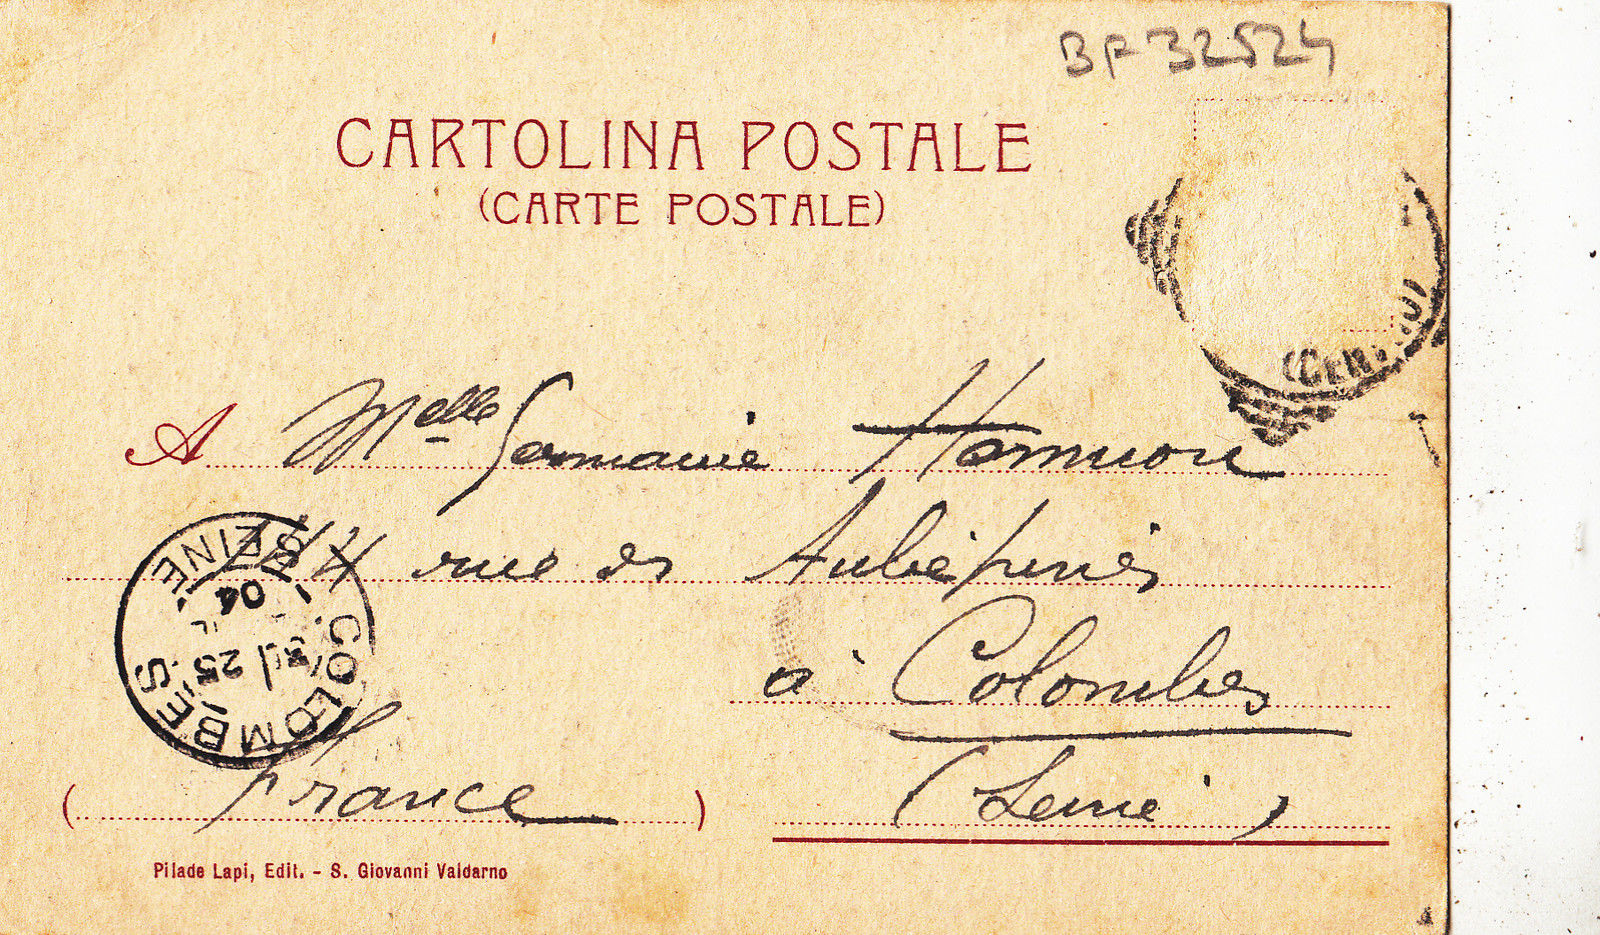 BF 32524
CARTOLINA POSTALE
(CARTE POSTALE)
A Melle Germaine
rue des Aubépines
à Colombes
(France)
(Seine)
COLOMBES SEINE
25 04
Pilade Lapi, Edit. - S. Giovanni Valdarno